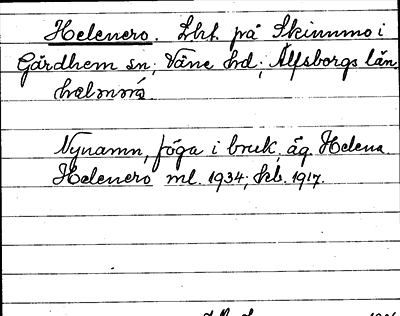 Helenero. Lht. på Skinnmo i
Gärdhem sn; Väne hd; Älfsborgs län.
Nynamn, föga i bruk, äg. Helena.
Helenero ml. 1934; kb. 1917.